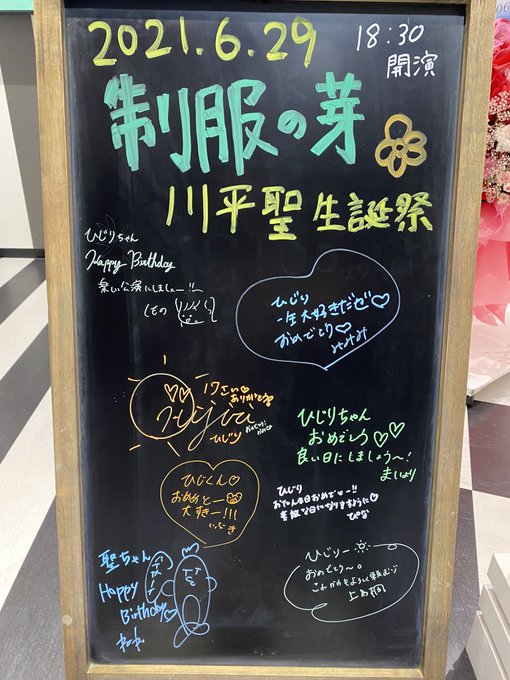 2021.6.29
18:30
開演
制服の芽
川平聖 生誕祭
ひじりちゃん
Happy Birthday
楽しい公演にしましょー!!
ひじり
一生大好きだぜ♡
おめでとう♡
みみみ
17さい♡
ありがとう
ひじり
ひじりちゃん
おめでとう♡♡
良い日にしましょう〜!
ましより
ひじくん♡
おめめとー
大すきー!!!
ひじり
おたん生日おめでとー!!
素敵な日になりますように♡
ぴな
聖ちゃん
Happy
Birthday♡
ひじりー
おめでとう〜。
これからもよろしく頼むぞ